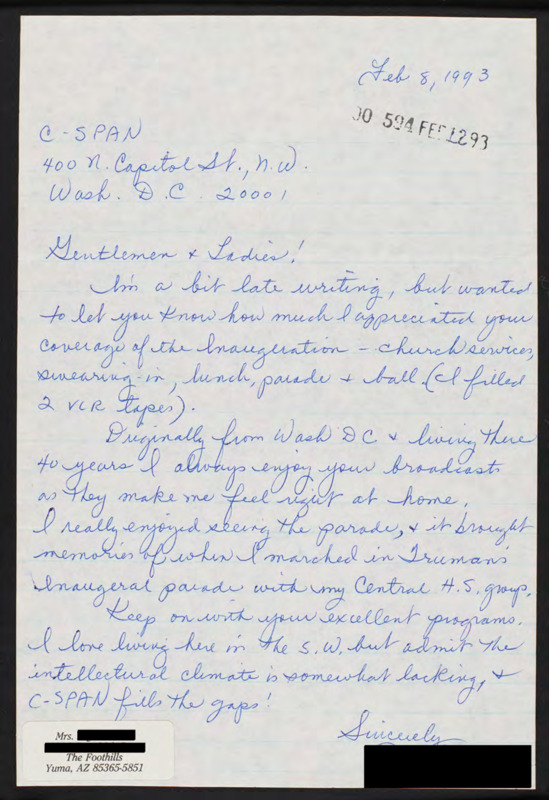 Feb 8, 1993
00 594 FEB 12 93
C-SPAN
400 N. Capitol St., N.W.
Wash. D.C. 20001
Gentlemen & Ladies!
I'm a bit late writing, but wanted
to let you know how much I appreciated your
coverage of the Inaugeration - church services,
swearing-in, lunch, parade & ball. (I filled
2 VCR tapes).
Originally from Wash DC & living there
40 years I always enjoy your broadcasts
as they make me feel right at home.
I really enjoyed seeing the parade, & it brought
memories of when I marched in Truman's
Inaugeral parade with my Central H.S. group.
Keep on with your excellent programs.
I love living here in the S.W. but admit the
intellectural climate is somewhat lacking, &
C-SPAN fills the gaps!
Sincerely
Mrs.
The Foothills
Yuma, AZ 85365-5851